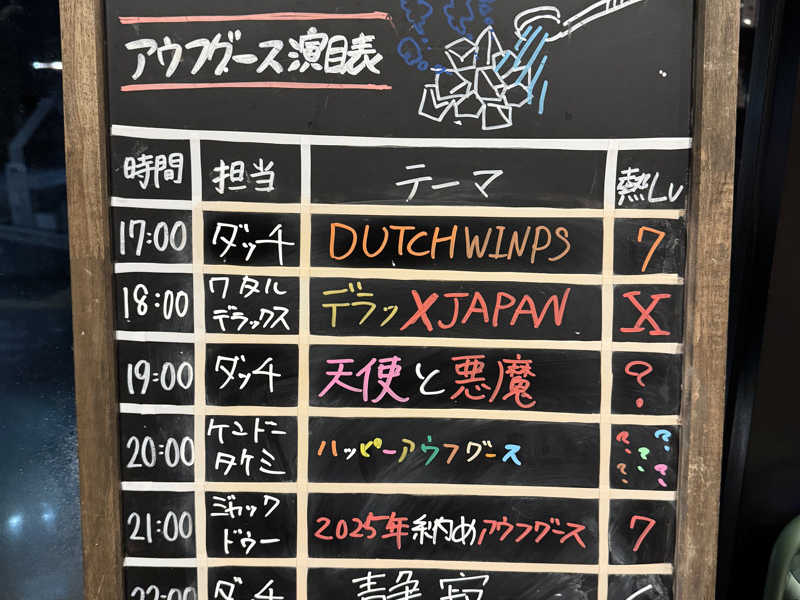 アウフグース演目表
時間 担当 テーマ 熱Lv
17:00 ダッチ DUTCHWINPS 7
18:00 ワタルデラックス デラッXJAPAN X
19:00 ダッチ 天使と悪魔 ?
20:00 ケンドータケミ ハッピーアウフグース ?????
21:00 ジャックドゥー 2025年納めアウフグース 7
22:00 ダッチ 静寂